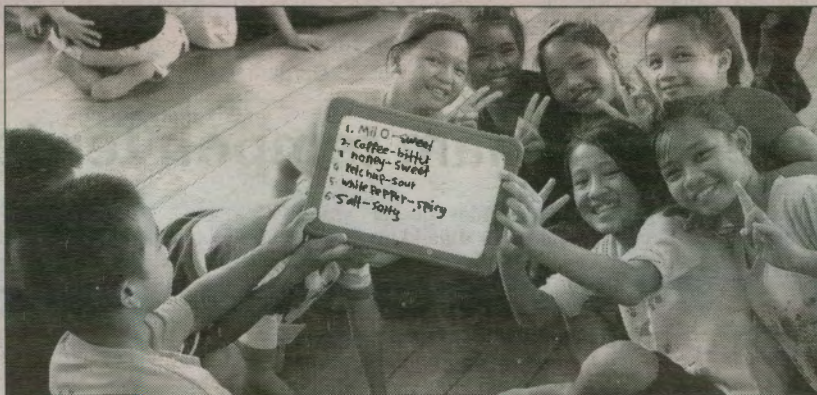 1. Milo-sweet
2. Coffee-bitter
3 honey-sweet
4 ketchup-sour
5. white pepper-spicy
6-Salt-Salty